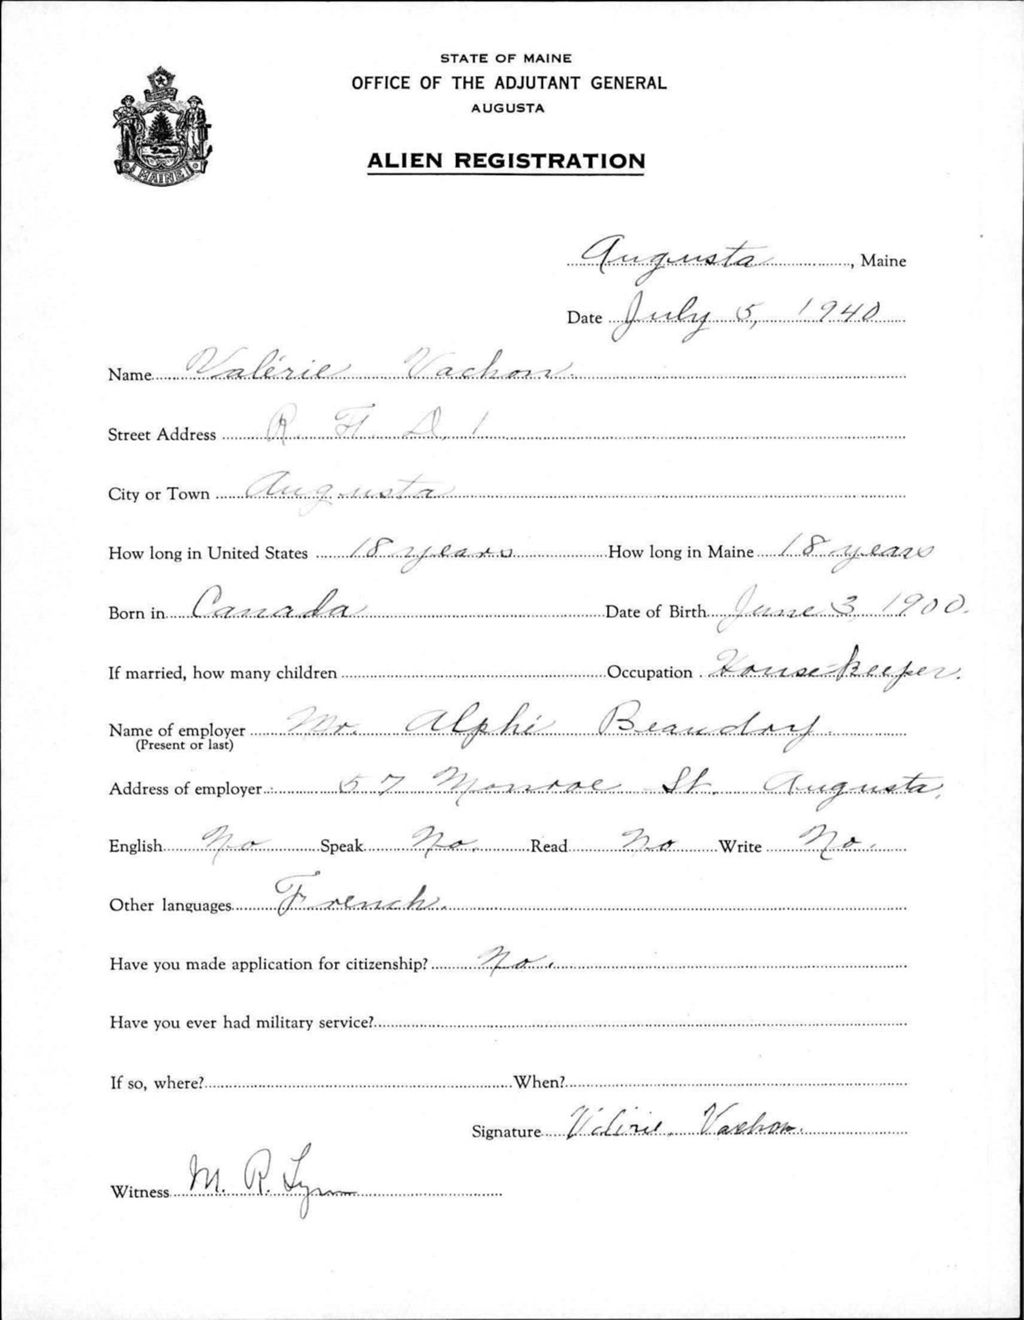 STATE OF MAINE
OFFICE OF THE ADJUTANT GENERAL
AUGUSTA
ALIEN REGISTRATION
MAINE
Augusta, Maine
Date July 5, 1940
Name Valérie Vachon.
Street Address R. F. D. 1
City or Town Augusta
How long in United States 18 years How long in Maine 18 years
Born in Canada Date of Birth June 3, 1900.
If married, how many children Occupation Housekeeper.
Name of employer Mr. Alphé Beaudry.
(Present or last)
Address of employer 57 Monroe St. Augusta.
English No Speak No. Read No Write No.
Other languages French.
Have you made application for citizenship? No.
Have you ever had military service?
If so, where? When?
Signature Valérie Vachon.
Witness M. R. Lynn